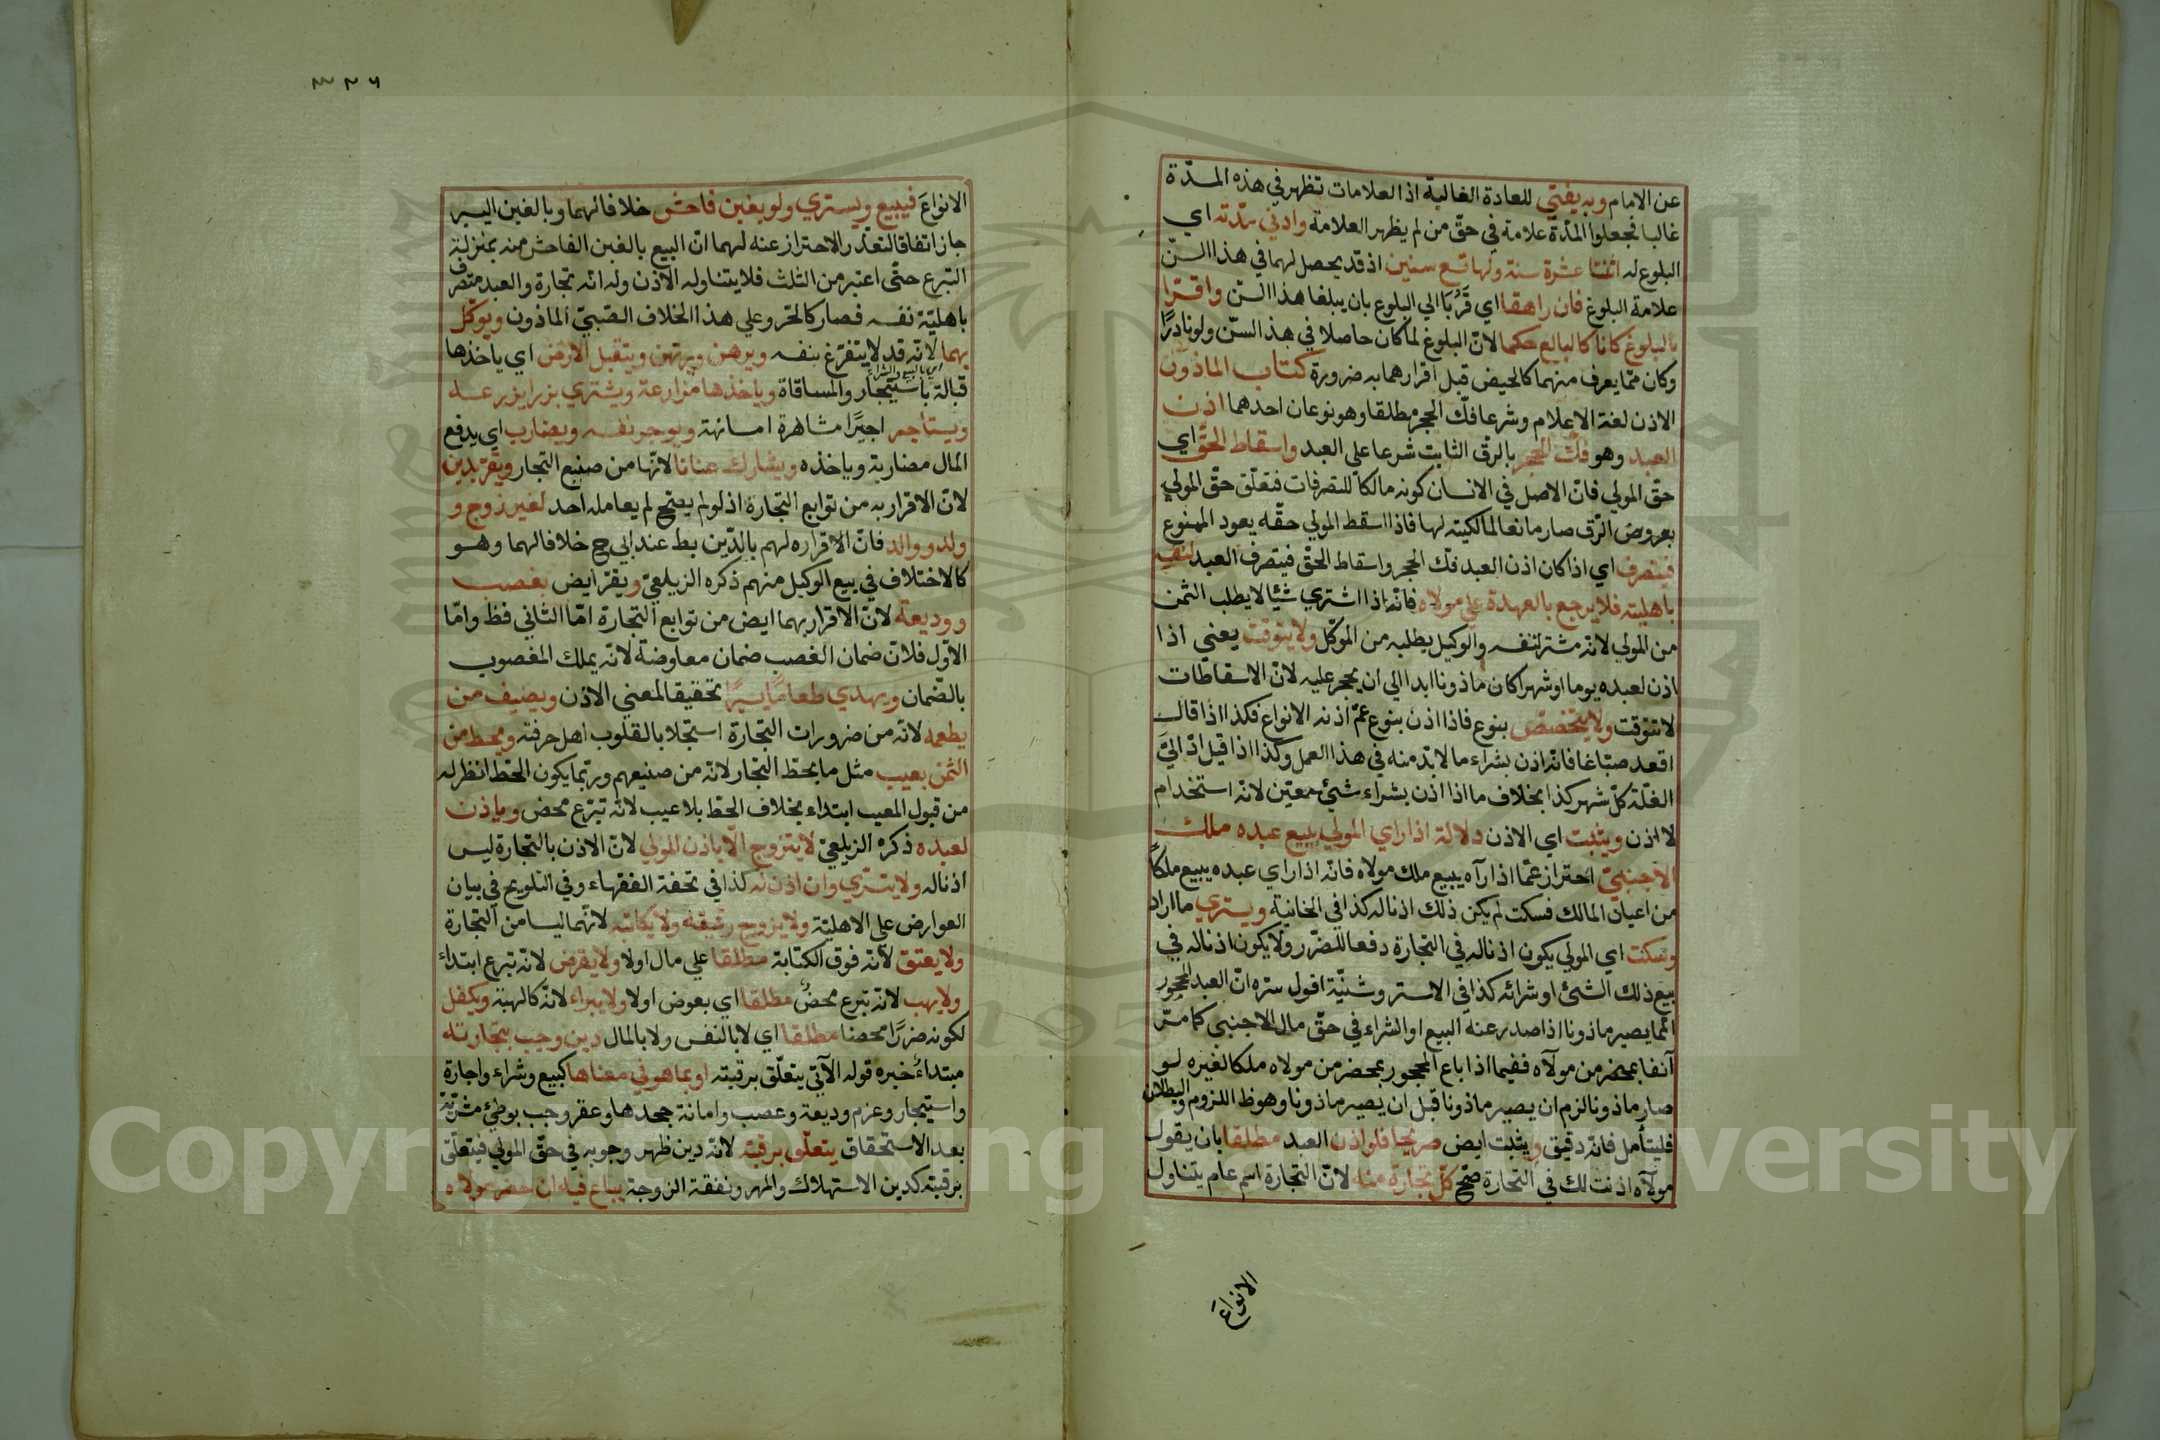 عن الامام وبه يفتي للعادة الغالبة اذ العلامات تظهر في هذه المدّة
غالبا فجعلوا المدّة علامة في حقّ من لم يظهر العلامة وادني مدّته اي
البلوغ له اثنتا عشرة سنة ولها تسع سنين اذ قد يحصل لهما في هذا السنّ
علامة البلوغ فان راهقا اي قَرُبَا الي البلوغ بان يبلغا هذا السنّ واقرّا
بالبلوغ كانا كالبالغ حكما لانّ البلوغ لما كان حاصلا في هذ السنّ ولو نادرًا
وكان ممّا يعرف منهما كالحيض قبل اقرارهما به ضرورة كتاب الماذون
الاذن لغة الاعلام وشرعا فكّ الحجر مطلقا وهو نوعان احدهما اذن
العبد وهو فكّ الحجر بالرقّ الثابت شرعا علي العبد واسقاط الحقّ اي
حقّ المولي فانّ الاصل في الانسان كونه مالكا للتصرفات فتعلّق حقّ المولي
بعروض الرّق صار مانعا لمالكيته لها فاذا اسقط المولي حقّه يعود الممنوع
فيتصرف اي اذا كان اذن العبد فكّ الحجر واسقاط الحقّ فيتصرف العبد لنفسه
باهليته فلا يرجع بالعهدة علي مولاه فانّه اذا اشتري شيئا لا يطلب الثمن
من المولي لانّه مشتر لنفسه والوكيل يطلبه من الموكّل ولا يتوقّت يعني اذا
اذن لعبده يوما او شهرا كان ماذونا ابدا الي ان يحجر عليه لانّ الاسقاطات
لا تتوقت ولا يتخصّص بنوع فاذا اذن بنوع عمّ اذنه الانواع فكذا اذا قال
اقعد صبّاغا فانّه اذن بشراء ما لا بدّ منه في هذا العمل وكذا اذا قيل ادّ اليّ
الغلّة كلّ شهر كذا بخلاف ما اذا اذن بشراء شيئ معيّن لانّه استخدام
لا اذن ويثبت اي الاذن دلالة اذا راي المولي يبيع عبده ملك
الاجنبيّ احتراز عمّا اذا رآه يبيع ملك مولاه فانّه اذا راي عبده يبيع ملكًا
من اعيان المالك فسكت لم يكن ذلك اذنا له كذا في الخانية ويشتري ما اراد
وسكت اي المولي يكون اذنا له في التجارة دفعا للضّرر ولا يكون اذنا له في
بيع ذلك الشئ او شرائه كذا في الاستروشنيّة اقول سرّه انّ العبد المحجور
انّما يصير ماذونا اذا صدر عنه البيع او الشراء في حقّ مال الاجنبي كما مرّ
آنفا بمحضر من مولاه ففيما اذا باع المحجور بمحضر من مولاه ملكا لغيره لو
صار ماذونا لزم ان يصير ماذونا قبل ان يصير ماذونا وهو ظ اللزوم والبطلان
فليتأمل فانّه دقيق ويثبت ايض صريحا فلو اذن العبد مطلقا بان يقول
مولاه اذنت لك في التجارة صحّ كلّ تجارة منه لانّ التجارة اسم عام يتناول
الانواعَ
٣٢٦
الانواعَ فيبيع ويشتري ولو بغبن فاحش خلافا لهما وبالغبن اليسير
جاز اتفاقا لتعذّر الاحتراز عنه لهما انّ البيع بالغبن الفاحش منه بمنزلة
التبرع حتّي اعتبر من الثلث فلا يتناوله الاذن وله انّه تجارة والعبد متصرف
باهليّة نفسه فصار كالحرّ وعلي هذا الخلاف الصّبيّ الماذون ويوكّل
بهما لانّه قد لا يتفرّغ بنفسه ويرهن ويرتهن ويتقبل الارض اي ياخذها
اي بالبيع والشراء
قبالة باستيجار والمساقاة وياخذها مزارعة ويشتري بزرا يزرعه
ويستاجر اجيرًا مشاهرة او مسانهة ويوجر نفسه ويضارب اي يدفع
المال مضاربة وياخذه ويشارك عنانا لانّها من صنيع التجار ويقرّ بدين
لانّ الاقرار به من توابع التجارة اذ لو لم يصحّ لم يعامله احد لغير زوج و
ولد ووالد فانّ الاقراره لهم بالدّين بط عند ابي ح خلافا لهما وهو
كالاختلاف في بيع الوكيل منهم ذكره الزيلعيّ ويقرّ ايض بغصب
ووديعة لانّ الاقرار بهما ايض من توابع التجارة امّا الثاني فظ وامّا
الاوّل فلانّ ضمان الغصب ضمان معاوضة لانّه يملك المغصوب
بالضّمان ويهدي طعامًا يسيرًا تحقيقا لمعني الاذن ويضيف من
يطعمه لانّه من ضرورات التجارة استجلابا لقلوب اهل حرفته ويحط من
الثمن بعيب مثل ما يحطّ التجار لانّه من صنيعهم وربّما يكون الحطّ انظر له
من قبول المعيب ابتداء بخلاف الحطّ بلا عيب لانّه تبرّع محض وياذن
لعبده ذكره الزيلعيّ لا يتزوج الّا باذن المولي لانّ الاذن بالتجارة ليس
اذنا له ولا يتسرّي وان اذن له كذا في تحفة الفقهاء وفي التلويح في بيان
العوارض علي الاهليّة ولا يزوج رقيقه ولا يكاتبه لانّهما ليسا من التجارة
ولا يعتق لانّه فوق الكتابة مطلقا علي مال اولا ولا يقرض لانّه تبرع ابتداء
ولا يهب لانّه تبرع محضٌ مطلقا اي بعوض اولا ولا يبراء لانّه كالهبة ويكفل
لكونه ضررًا محضا مطلقا اي لا بالنفس ولا بالمال دين وجب بتجارته
مبتداءٌ خبره قوله الآتي يتعلّق برقبته او بما هو في معناها كبيع وشراء واجارة
واستيجار وغرم وديعة وغصب وامانة جحدها وعقر وجب بوطئ مشريّة
بعد الاستحقاق يتعلّق برقبته لانّه دين ظهر وجوبه في حقّ المولي فيتعلّق
برقبته كدين الاستهلاك والمهر ونفقة الزوجة يباع فيه ان حضر مولاه
Copyright © King Saud University